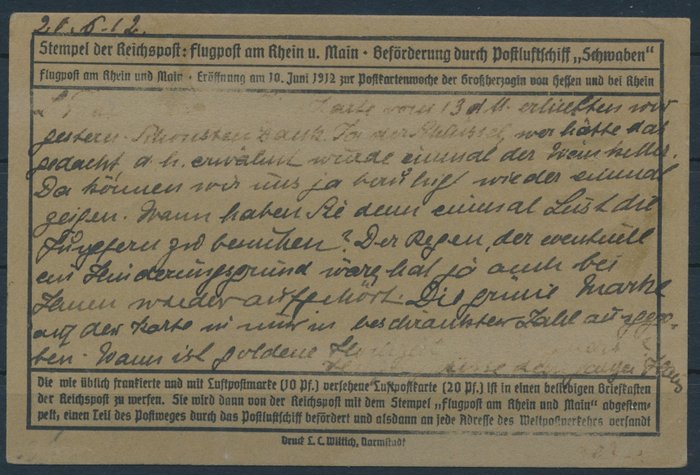 21.6.12.
Stempel der Reichspost: Flugpost am Rhein u. Main · Beförderung durch Postluftschiff „Schwaben“
Flugpost am Rhein und Main · Eröffnung am 10. Juni 1912 zur Postkartenwoche der Großherzogin von Hessen und bei Rhein
Karte vom 13 d. M. erhielten wir
gestern. Schönsten Dank. wer hätte das
gedacht d. h. erwähnt wurde einmal der Weinkeller.
Da können wir uns ja wieder einmal
zeigen. Wann haben Sie denn einmal Lust die
Jungfern zu besuchen? Der Regen, der eventuell
ein Hinderungsgrund wäre hat ja auch bei
Ihnen wieder aufgehört. Die grüne Marke
auf der Karte ist nur in beschränkter Zahl ausgege-
ben. Wann ist goldene
Die wie üblich frankierte und mit Luftpostmarke (10 Pf.) versehene Luftpostkarte (20 Pf.) ist in einen beliebigen Briefkasten
der Reichspost zu werfen. Sie wird dann von der Reichspost mit dem Stempel „Flugpost am Rhein und Main“ abgestem-
pelt, einen Teil des Postweges durch das Postluftschiff befördert und alsdann an jede Adresse des Weltpostverkehrs versandt
Druck L. C. Wittich, Darmstadt